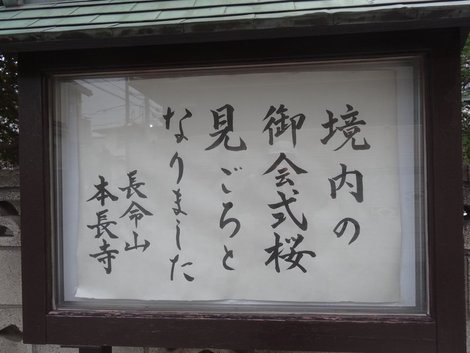 境内の
御会式桜
見ごろと
なりました
長命山
本長寺